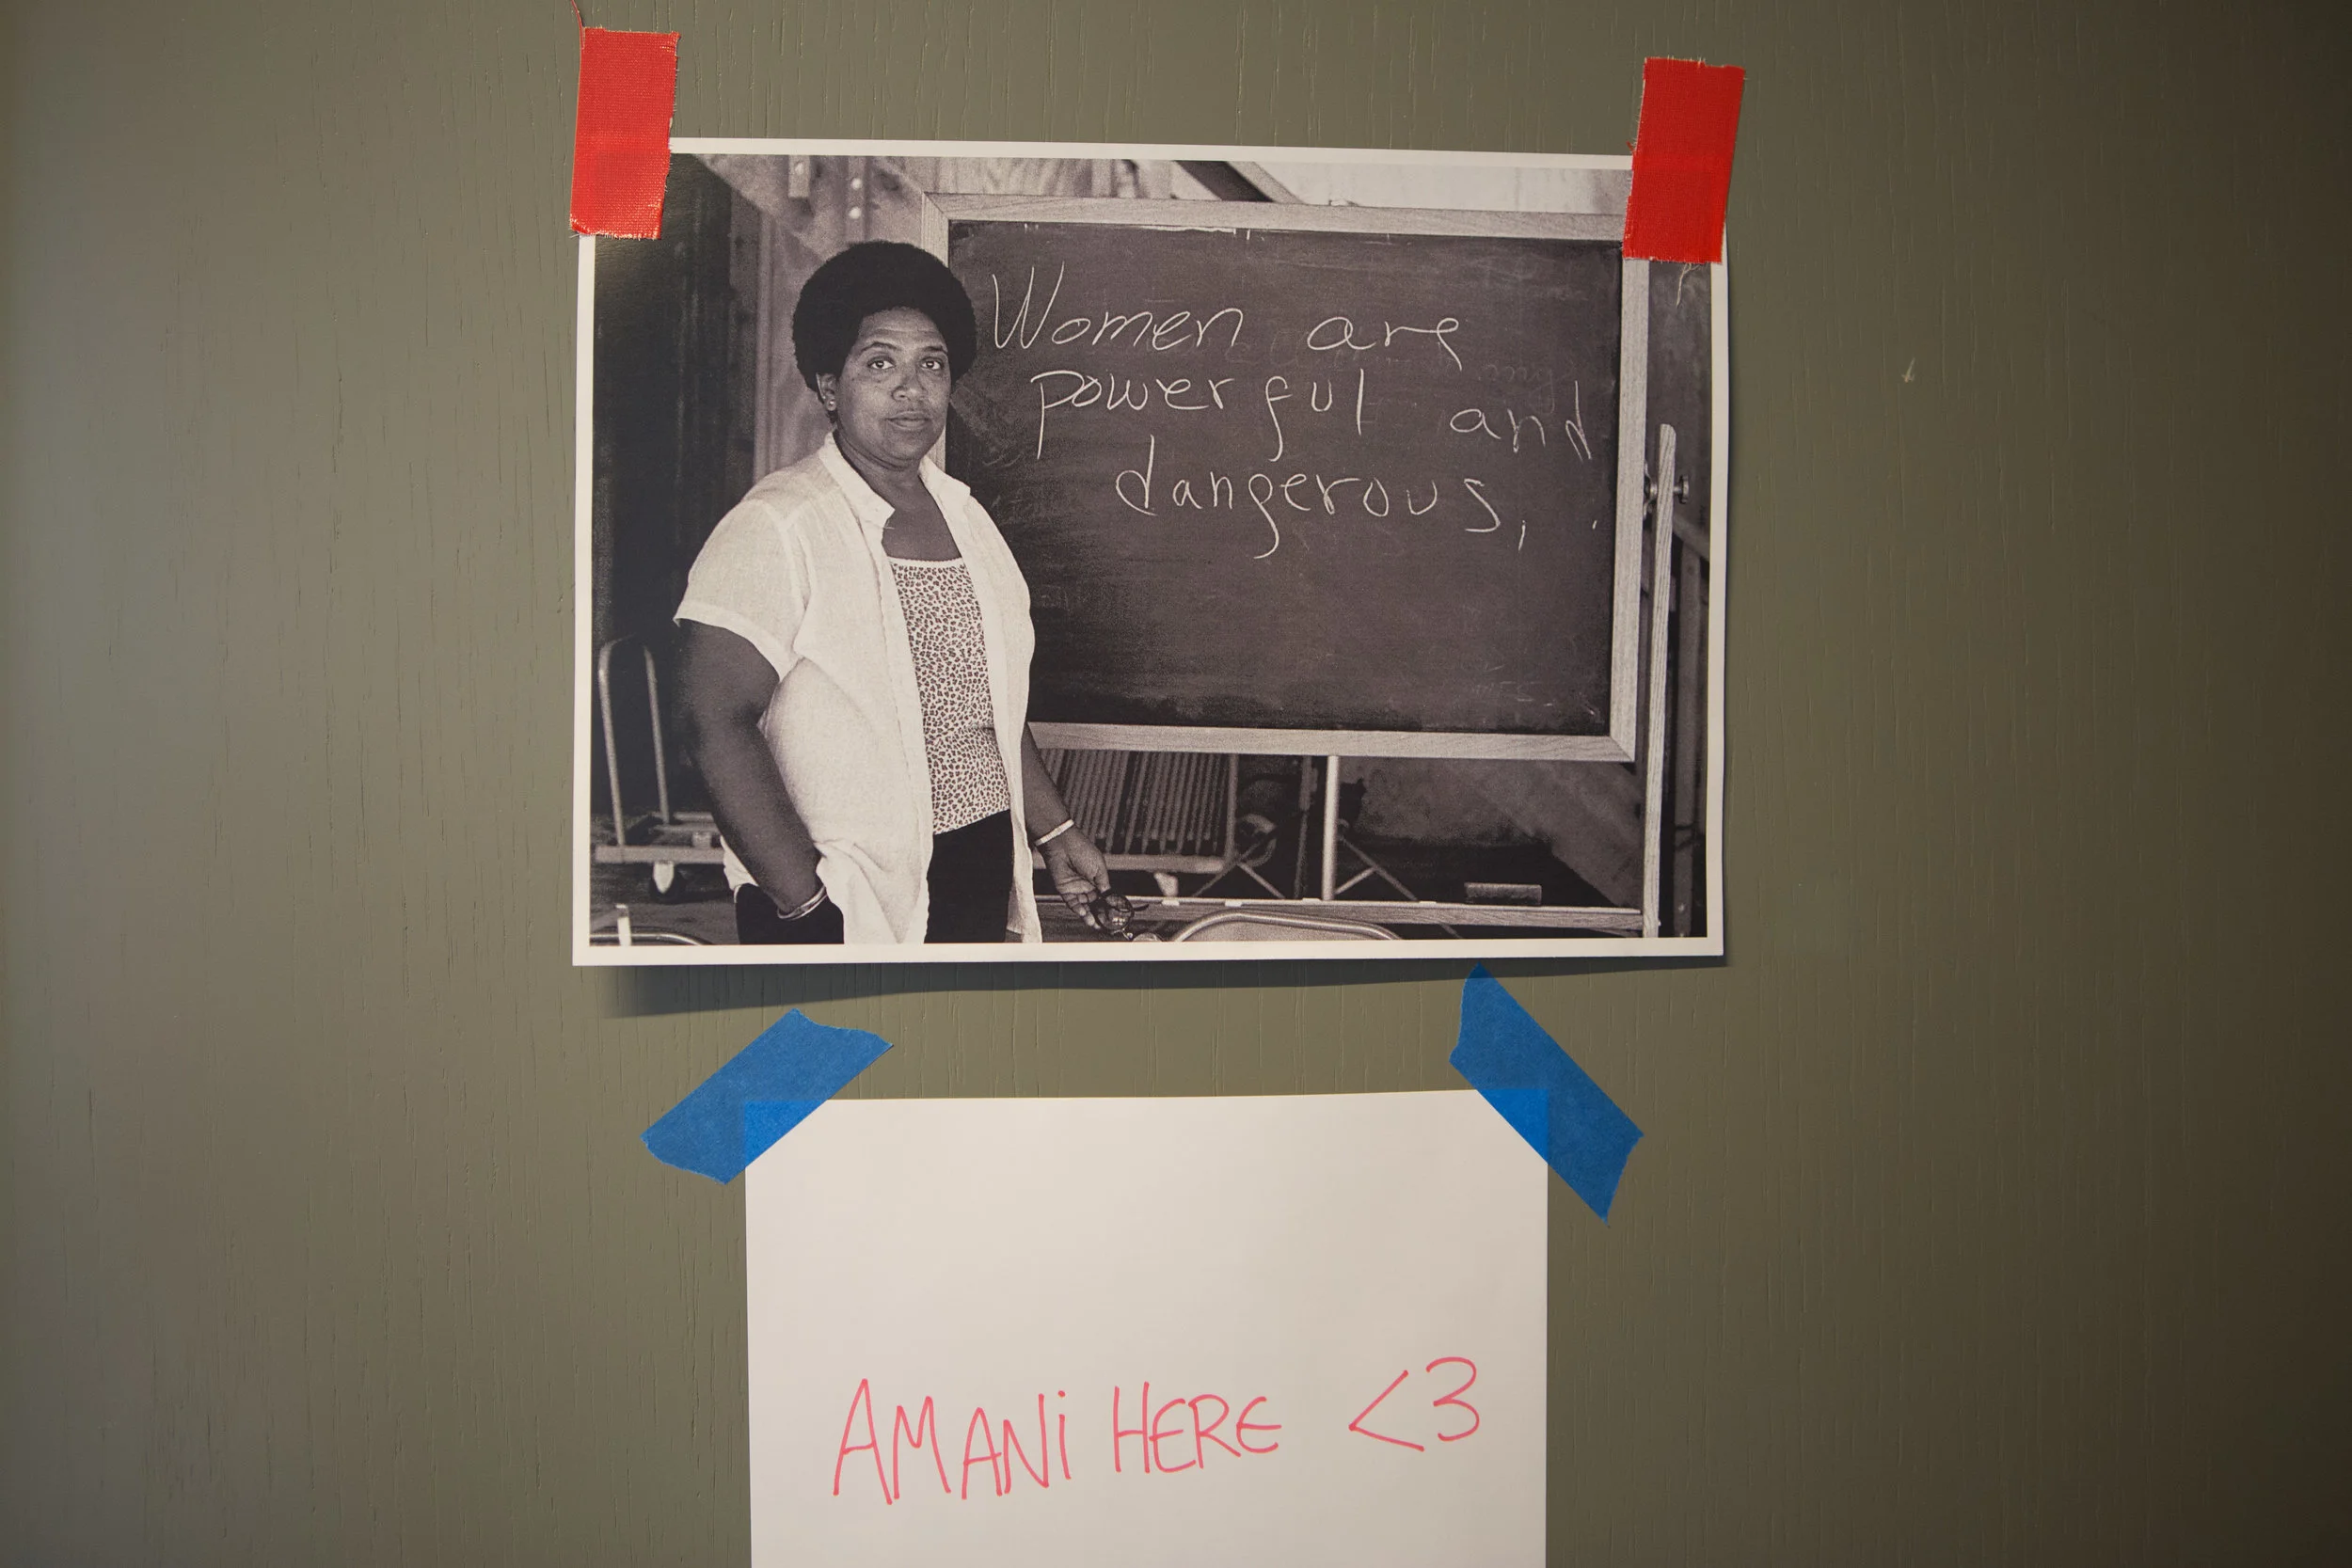 Women are
powerful and
dangerous,
AMANi HERE <3